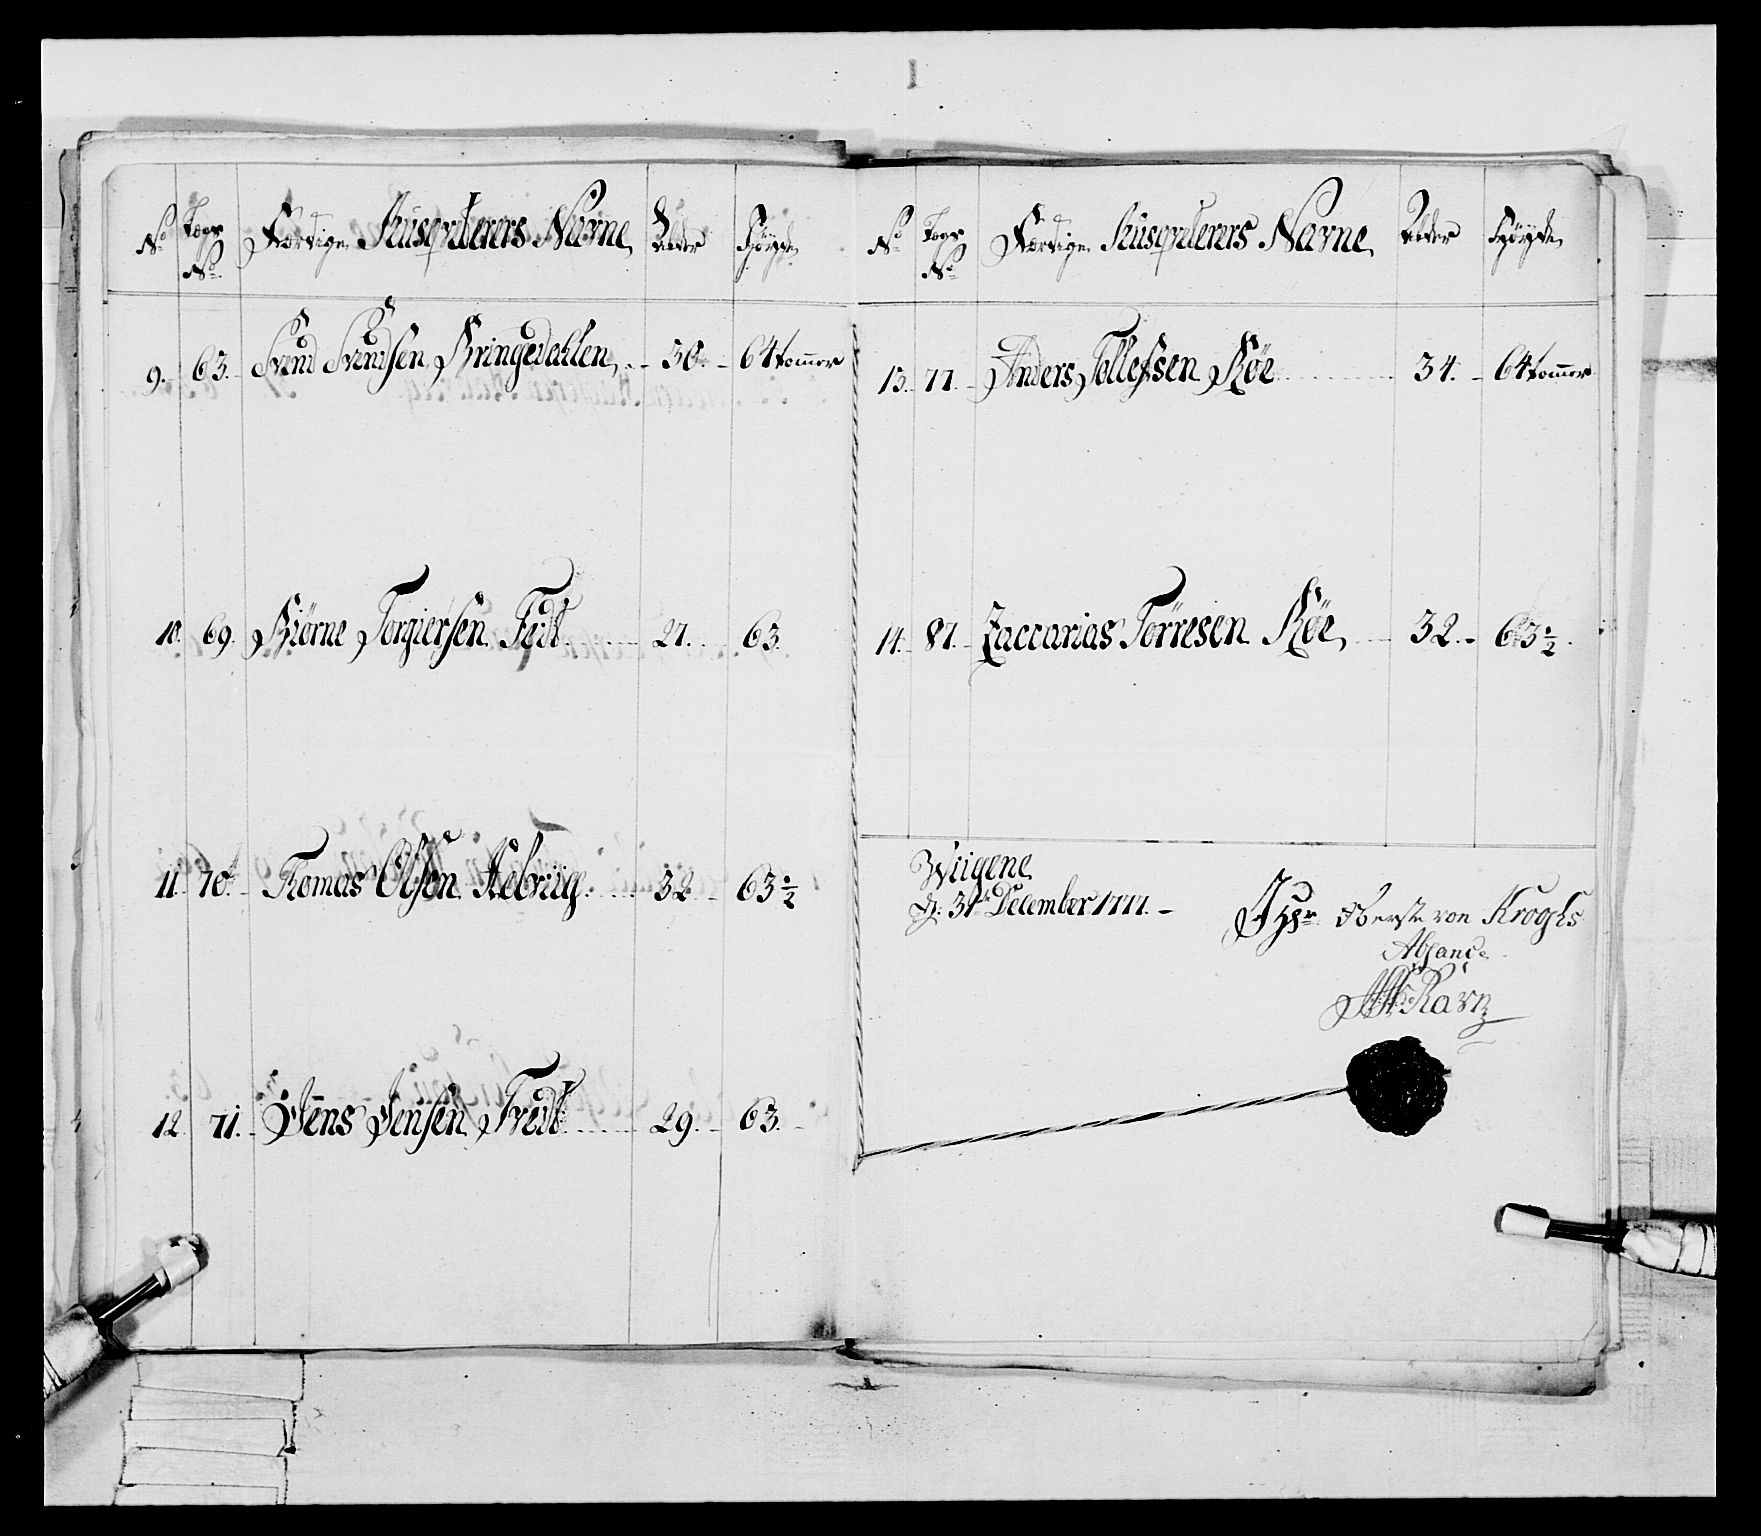 No Lægs No Færdige Musqveterers Navne Alder Høyde
9. 63. Svend Svendsen Kringedahlen 30. 64 tommer
10. 69. Biörne Torgiersen Fedt 27. 63.
11. 70. Tomas Olsen Aebviig 32. 63 1/2
12. 71. Jens Jensen Tvedt 29. 63.
No Lægs No Færdige Musqveterers Navne Alder Høyde
13. 77. Anders Tollefsen Röe 34. 64 tommer
14. 87. Zaccarias Törresen Röe 32. 63 1/2
Wiigene
d: 31te December 1777.
Oberste von Kroghs
Absance